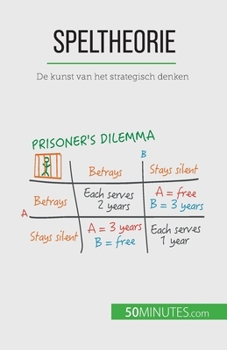 SPELTHEORIE
De kunst van het strategisch denken
PRISONER'S DILEMMA
B
Betrays
Stays silent
A
Betrays
Each serves
2 years
A = free
B = 3 years
Stays silent
A = 3 years
B = free
Each serves
1 year
50MINUTES.com